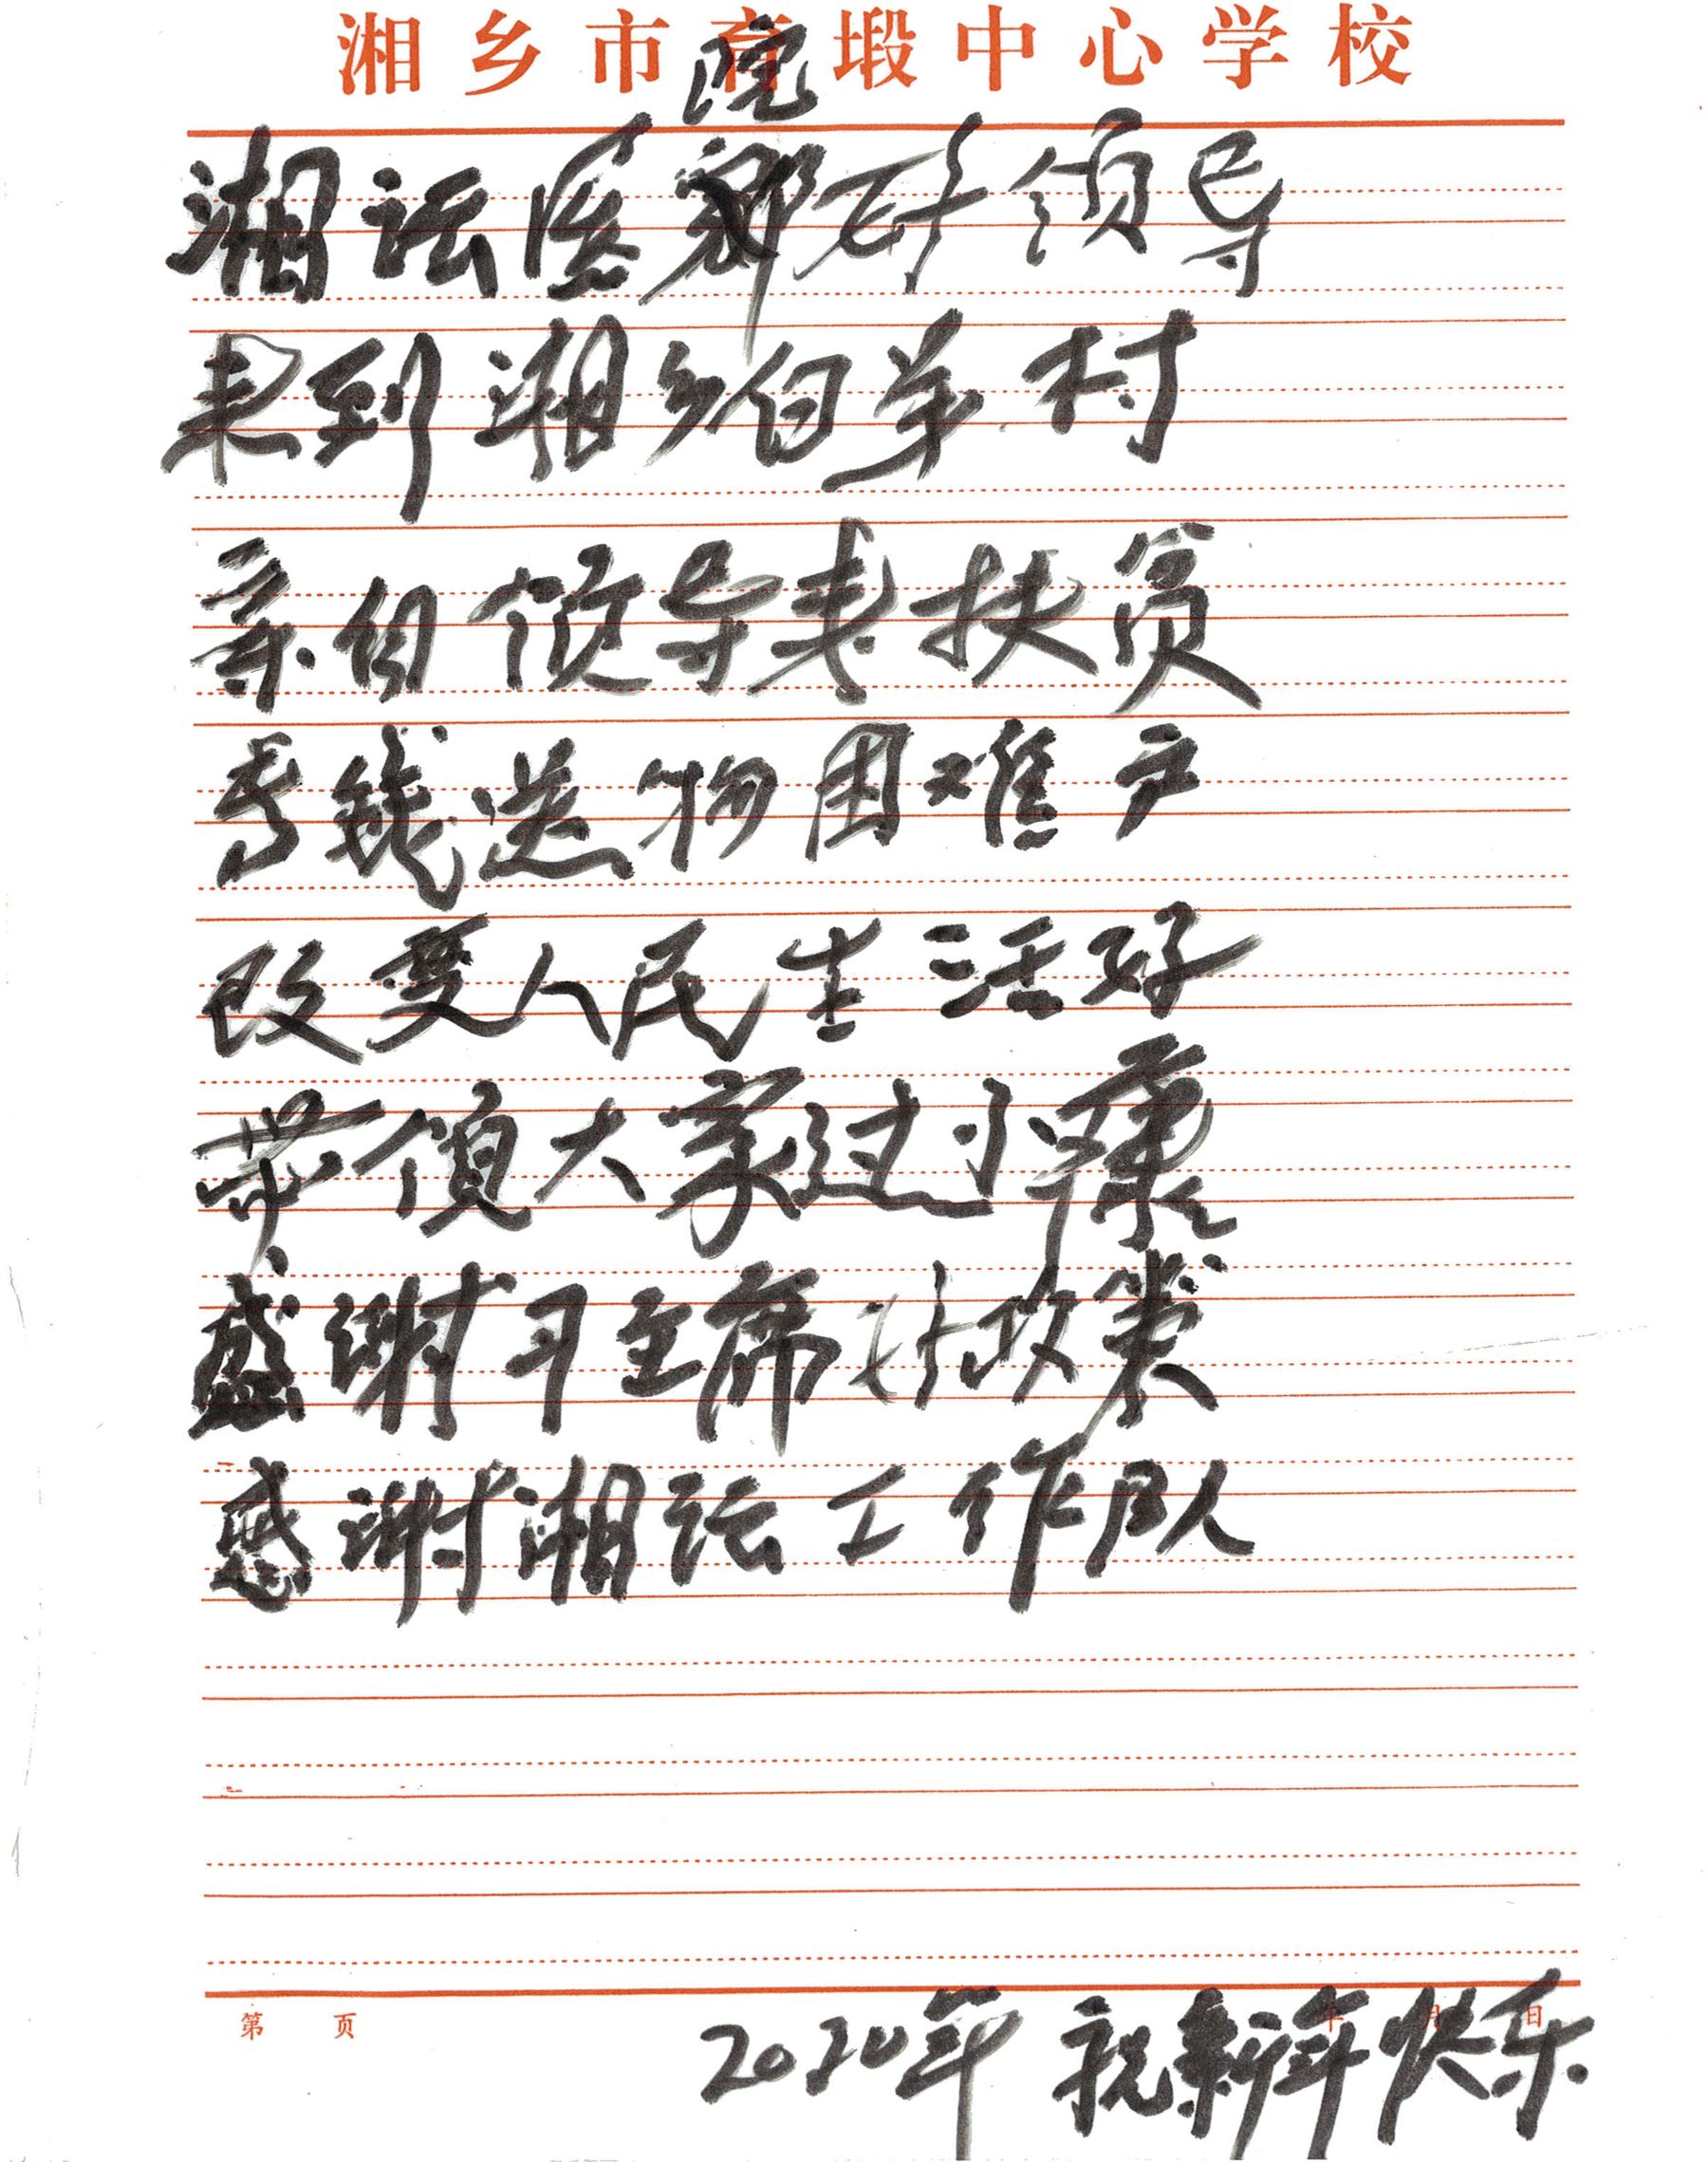 湘乡市育塅中心学校
院
湘坛医那好领导
来到湘乡白茅村
亲自领导来扶贫
寄钱送物困难户
改变人民生活好
带领大家过小康
感谢习主席好政策
感谢湘坛工作队
第 页 年 月 日
2020年 祝新年快乐